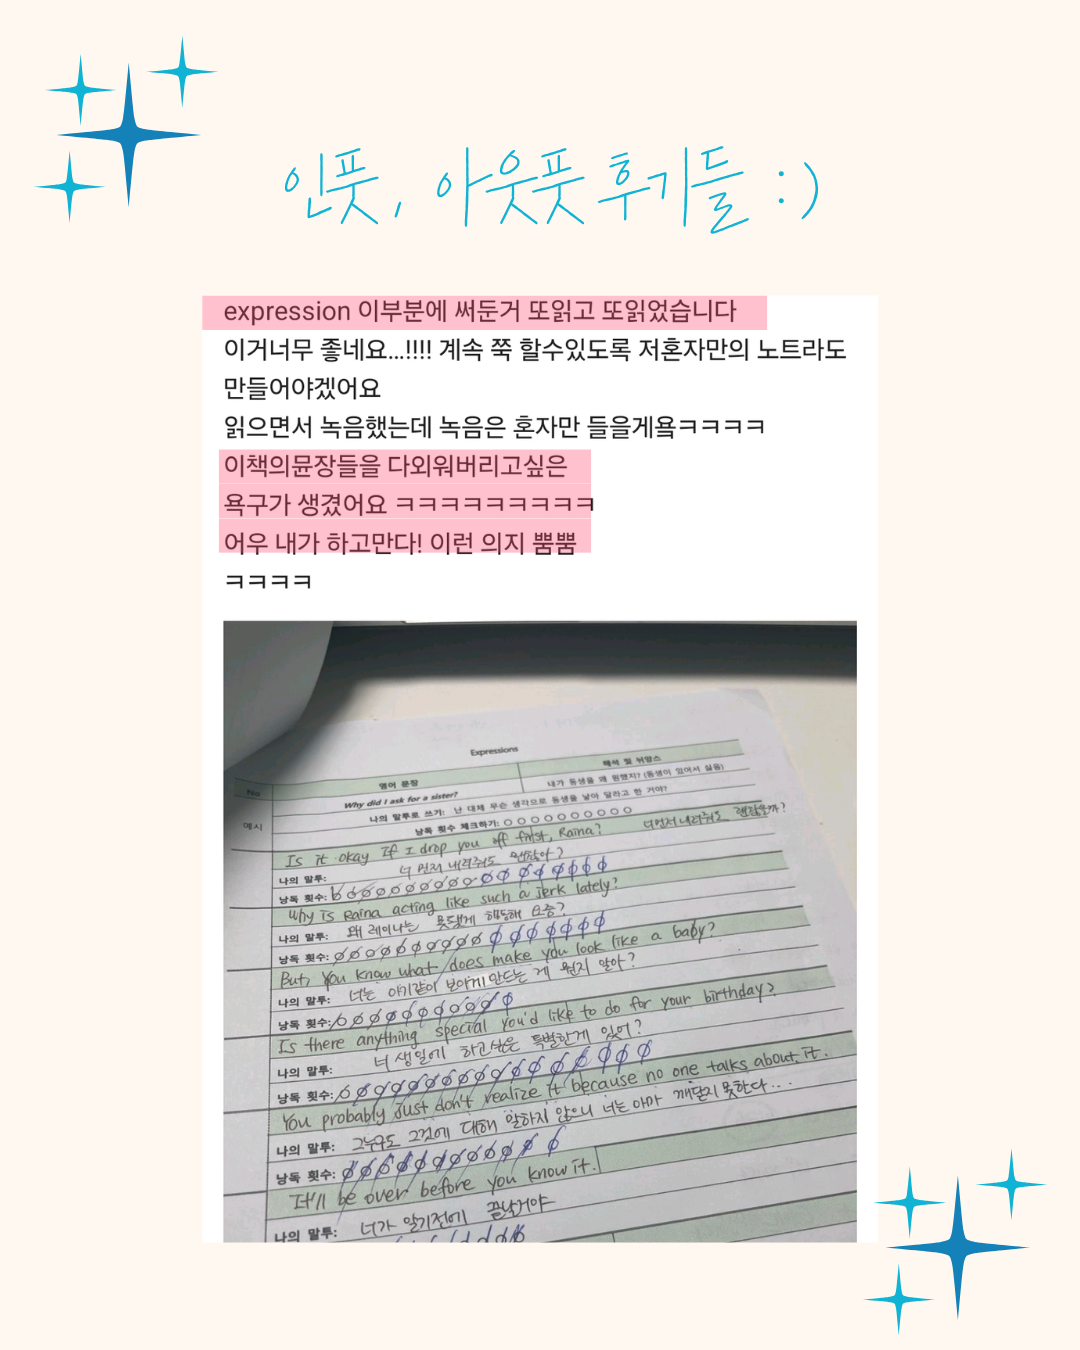 인풋, 아웃풋 후기들 :)
expression 이부분에 써둔거 또읽고 또읽었습니다
이거너무 좋네요...!!!! 계속 쭉 할수있도록 저혼자만의 노트라도
만들어야겠어요
읽으면서 녹음했는데 녹음은 혼자만 들을게욬ㅋㅋㅋㅋ
이책의뮨장들을 다외워버리고싶은
욕구가 생겼어요 ㅋㅋㅋㅋㅋㅋㅋㅋㅋ
어우 내가 하고만다! 이런 의지 뿜뿜
ㅋㅋㅋㅋ
Expressions
No 영어 문장 해석 및 뉘앙스
예시 Why did I ask for a sister? 내가 동생을 왜 원했지? (동생이 있어서 싫음)
나의 말투로 쓰기: 난 대체 무슨 생각으로 동생을 낳아 달라고 한 거야?
낭독 횟수 체크하기: ○○○○○○○○○○
Is it okay If I drop you off first, Raina? 너먼저 내려줘도 괜찮을까?
나의 말투: 너 먼저 내려줘도 괜찮아?
낭독 횟수:
Why Is Raina acting like such a jerk lately?
나의 말투: 왜 레이나는 못됐게 행동해 요즘?
낭독 횟수:
But, You know what does make you look like a baby?
나의 말투: 너는 아기같이 보이게 만드는 게 뭔지 알아?
낭독 횟수:
Is there anything special you'd like to do for your birthday?
나의 말투: 너 생일에 하고싶은 특별한게 있어?
낭독 횟수:
You probably just don't realize it because no one talks about it.
나의 말투: 그누구도 그것에 대해 말하지 않으니 너는 아마 깨닫지 못한다...
낭독 횟수:
It'll be over before you know it.
나의 말투: 너가 알기전에 끝날거야